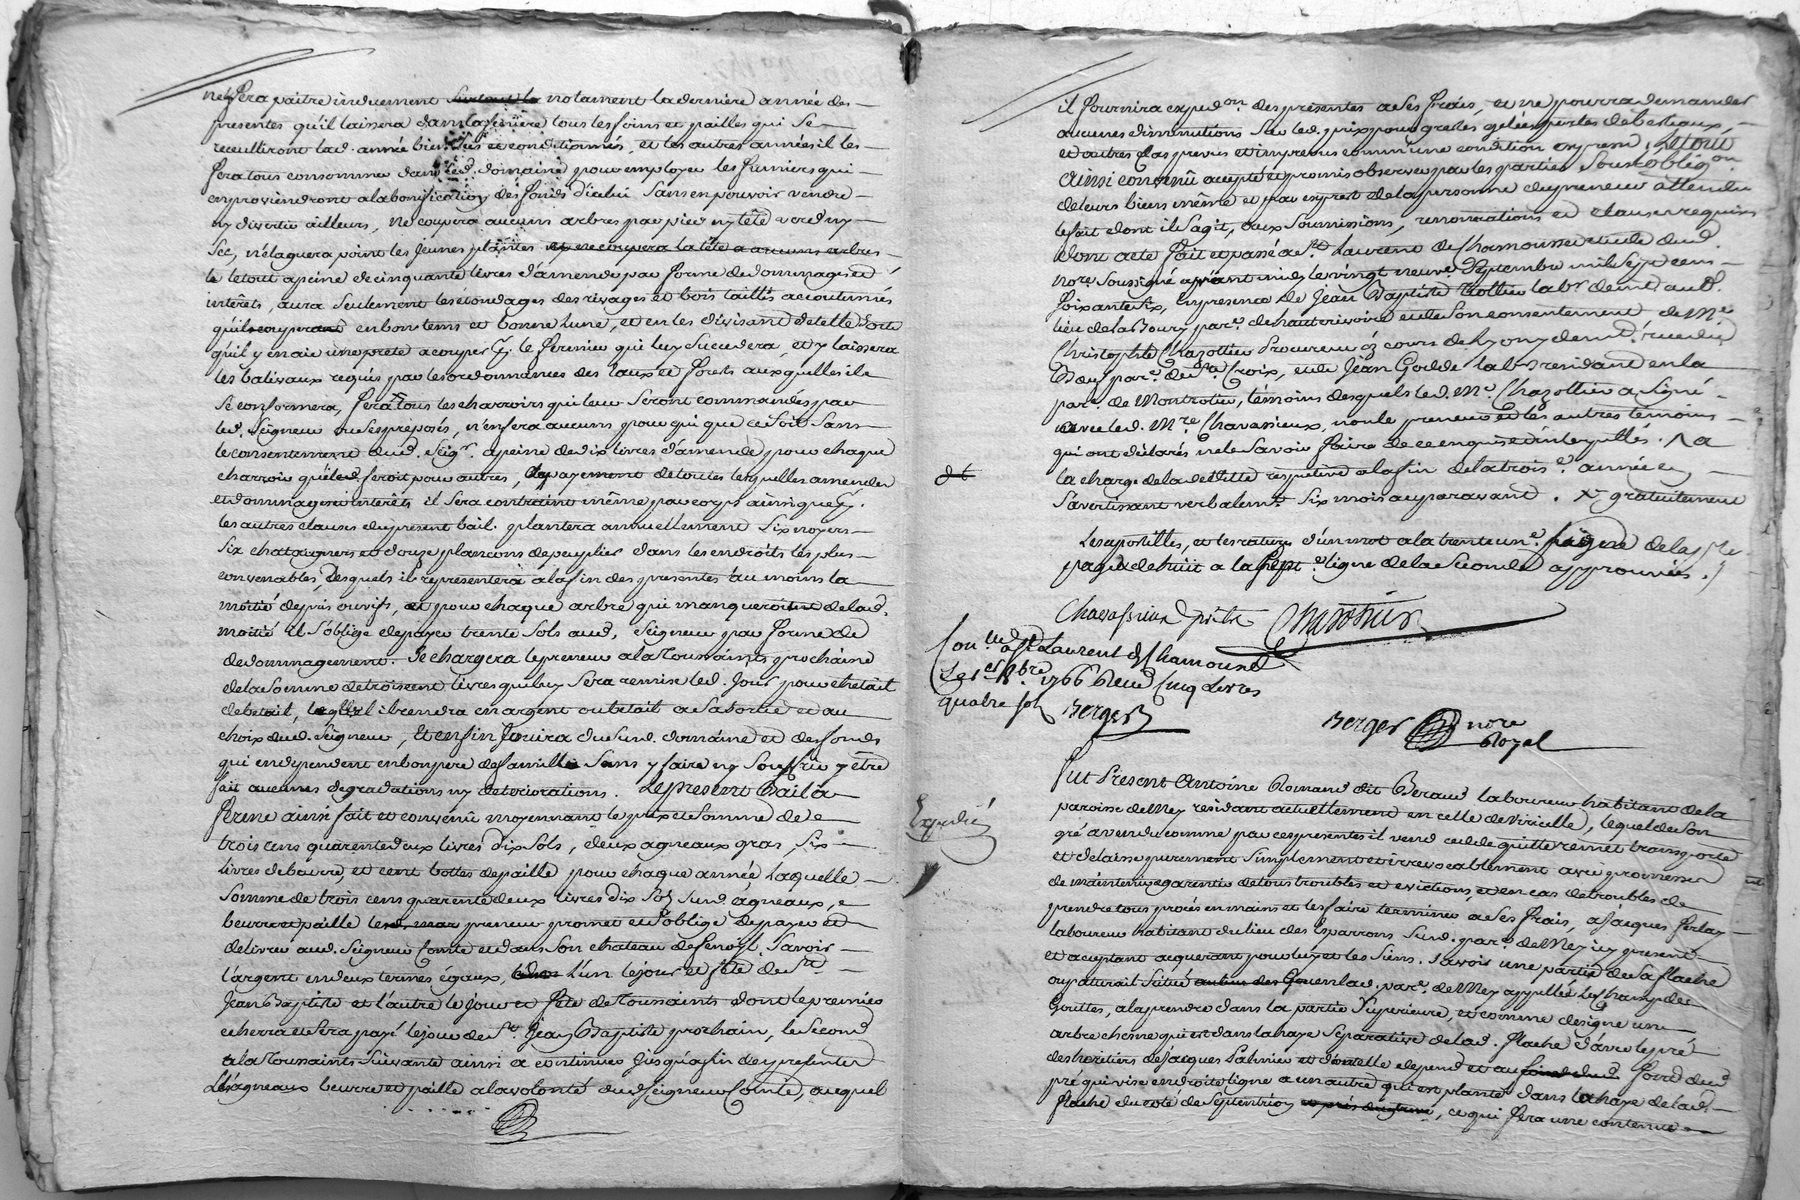 ne fera paitre induement surtout la notament la derniere année des
presentes qu'il laissera dans la feniere tous les foins et pailles qui se
recueilliront lad. année bien et conditionnés, et les autres années il les
fera tous consommer dans led. domaine pour employer les fumiers qui
en proviendront a la bonification des fonds d'icelui sans en pouvoir vendre
ny divertir ailleurs, ne coupera aucuns arbres par pied ny tête verd ny
sec, n'élaguera point les jeunes plantes ny ne coupera la tête a aucuns arbres
le tout a peine de cinquante livres d'amende par forme de dommages et
intérêts, aura seulement les émondages des rivages et bois taillis accoutumés
qu'il coupera en bons tems et bonne lune, et en les divisant de telle sorte
qu'il y en aie une prete a couper p. le fermier qui luy succedera, et y laissera
les balivaux requis par les ordonnances des Eaux et forets auxquelles il
se conformera, fera tous les charrois qui leur seront commandés par
led. seigneur ou ses preposés, n'en fera aucuns pour qui que ce soit sans
le consentement dud. seigr. a peine de dix livres d'amende pour chaque
charroir qu'il feroit pour autres, au payement de toutes lesquelles amendes
et dommages intérêts il sera contraint même par corps ainsi que p.
les autres clauses du present bail. plantera annuellement six noyers
six chataigners et douze plançons de peuplier dans les endroits les plus
convenables, desquels il representera a la fin des presentes au moins la
moitié depris ou vifs, et pour chaque arbre qui manqueroit de lad.
moitié il s'oblige de payer trente sols aud. seigneur par forme de
dedommagement. Se chargera le preneur a la Toussaints prochaine
de la somme de trois cent livres qui luy sera remise led. jour pour chetail
de betail, lequel il rendra en argent ou betail a sa sortie et au
choix dud. seigneur, Et enfin jouira du susd. domaine et des fonds
qui en dependent en bon pere de famille sans y faire ny souffrir y être
fait aucunes degradations ny deteriorations. Le present Bail à
ferme ainsi fait et convenû moyennant le prix et somme de
trois cens quarente deux livres dix sols, deux agneaux gras, six
livres de beurre, et cent bottes de paille pour chaque année Laquelle
somme de trois cens quarente deux livres dix sols susd. agneaux,
beurre et paille led. preneur promet et s'oblige de payer et
delivrer aud. seigneur Comte et dans son chateau de Senoÿl. Savoir
l'argent en deux termes égaux, l'un le jour et fete de St.
Jean Baptiste et l'autre le jour et fete de Toussaints dont le premier
echerra et sera payé le jour de St. Jean Baptiste prochain, le second
a la Toussaints suivante ainsi a continuer jusqu'a fin des presentes
Les agneaux beurre et paille a la volonté dud. seigneur Comte, auquel
il fournira expedon. des presentes a ses frais, et ne pourra demander
aucunes diminutions sur led. prix pour greles, gelées, pertes de bestiaux,
et autres cas prevus et imprevus comm'une condition expresse. Le tout
Ainsi convenû accepté et promis observer par les parties sous obligon.
de leurs biens meme et par exprest de la personne du preneur attendu
le fait dont il s'agit, aux soumissions, renonciations et clauses requises
Dont acte fait et passé a St. Laurent de Chamousset etude dud.
nore. soussigné avant midy le vingt neuve. septembre mil sept cens
soixante six, en presence de Jean Baptiste Mollieu labr. demt. aud.
lieu de la Boury parr. de hauterivoire et de son consentement de Me
Christophle Chazottier Procureur ez cours de Lyon y demt. rue dud.
Bœuf parr. de Ste. Croix, et de Jean Goddé labr. residant en la
parr. de Montrotier, témoins desquels led. Me. Chazottier a signé
avec led. Mre. Chavassieux, non le preneur et les autres témoins
qui ont déclarés ne le savoir faire de ce enquis et interpellés. A
la charge de la dedite respective a la fin de la troise. année en
s'avertissant verbalemt. six mois auparavant. X gratuitement
Les apostilles, et les ratures d'un mot a la trente une. ligne de la pre.
page de huit a la sept.e ligne de la seconde approuvées.
Chavassieux pretre Chazottier
Con.lled a St Laurent de Chamousset
Le 1er 8bre 1766 Reçu Cinq livres
quatre sols Berger
Berger nore
Royal
Expedié
Fut Present Antoine Romand dit Beraud laboureur habitant de la
paroisse de Mey residant actuellement en celle de Viricelle, lequel de son
gré a vendu comme par ces presentes il vend cede quitte remet transporte
et delaisse purement simplement et irrevocablement avec promesse
de maintenir garentir de tous troubles et evictions, et en cas de troubles de
prendre tous procés en mains et les faire terminer a ses frais, a Jacques Ferlay
laboureur habitant du lieu des Esparrons susd. parr. de Mey icy present
et acceptant acquerant pour luy et les siens. Savoir une partie de sa flache
ou paturail scitué en lad. parr. de Mey appellée Les Champ des
Gouttes, a la prendre dans la partie superieure, et comme designe un
arbre chesne qui est dans la haye separative de lad. flache d'avec le pré
des heritiers de Jacques Palmier et dont elle depend et au fond dud.
pré qui vise en droite ligne a un autre qui est planté dans la haye de lad.
flache du coté de septentrion, ce qui fera une contenue